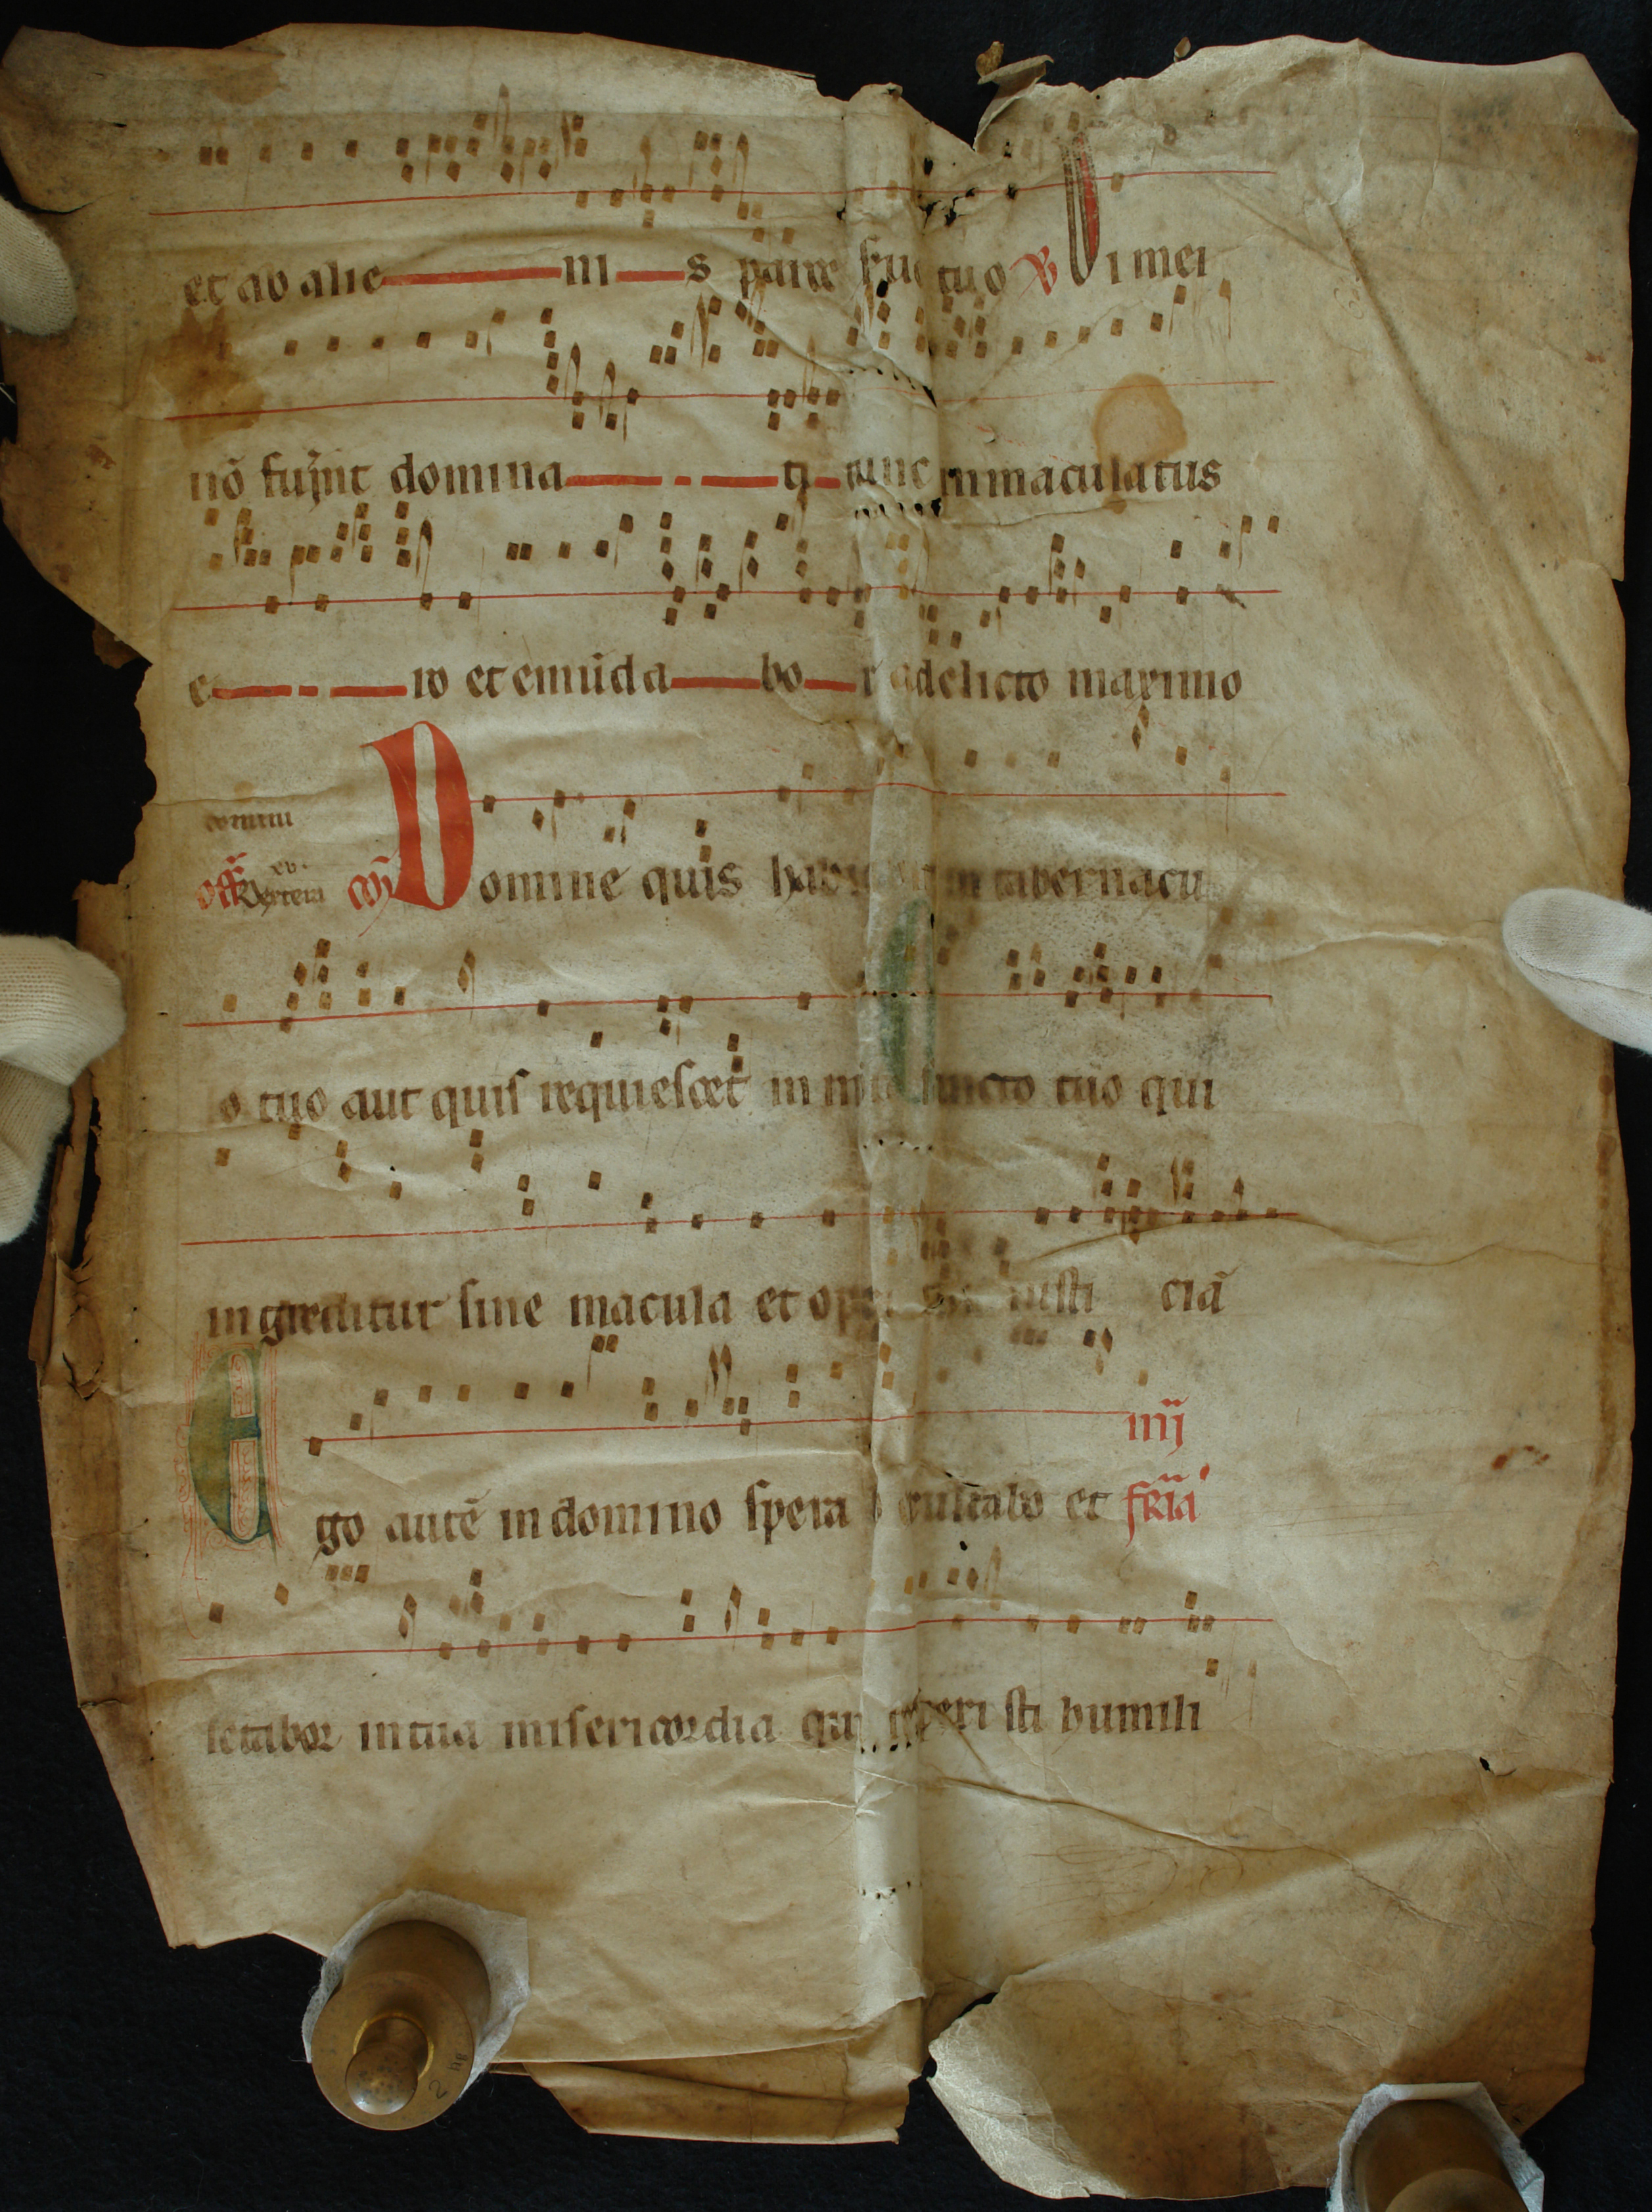 et ab alie ni s parce seruo tuo ℣ Si mei
nō fuĩnt domina ti tunc inmaculatus
e ro et emũda bo r a delicto maximo
domini
off̃ Dextera xv. cõ Domine quis habitabit in tabernacu
lo tuo aut quis requiescet in mõte sancto tuo qui
ingreditur sine macula et operatur iusti ciã
Ego autẽ in domino spera exultabo et
iiij
fr̃ia
letabor in tua misericordia quia respexi sti humili